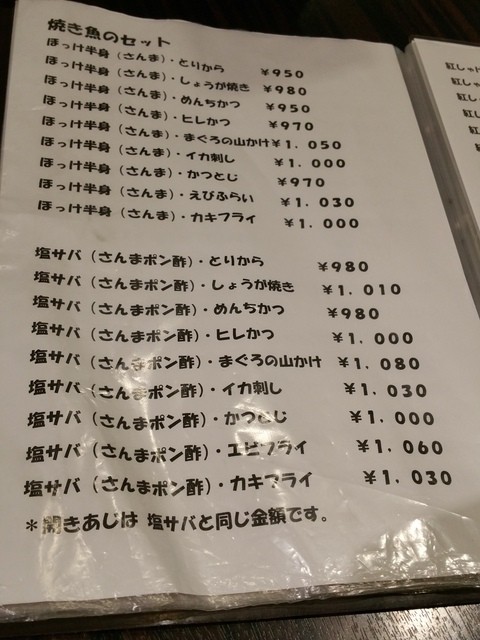 焼き魚のセット
ほっけ半身（さんま）・とりから ￥950
ほっけ半身（さんま）・しょうが焼き ￥980
ほっけ半身（さんま）・めんちかつ ￥950
ほっけ半身（さんま）・ヒレかつ ￥970
ほっけ半身（さんま）・まぐろの山かけ￥1．050
ほっけ半身（さんま）・イカ刺し ￥1．000
ほっけ半身（さんま）・かつとじ ￥970
ほっけ半身（さんま）・えびふらい ￥1．030
ほっけ半身（さんま）・カキフライ ￥1．000
塩サバ（さんまポン酢）・とりから ￥980
塩サバ（さんまポン酢）・しょうが焼き ￥1．010
塩サバ（さんまポン酢）・めんちかつ ￥980
塩サバ（さんまポン酢）・ヒレかつ ￥1．000
塩サバ（さんまポン酢）・まぐろの山かけ ￥1．080
塩サバ（さんまポン酢）・イカ刺し ￥1．030
塩サバ（さんまポン酢）・かつとじ ￥1．000
塩サバ（さんまポン酢）・エビフライ ￥1．060
塩サバ（さんまポン酢）・カキフライ ￥1．030
＊開きあじは 塩サバと同じ金額です。
紅しゃけ
紅し
紅